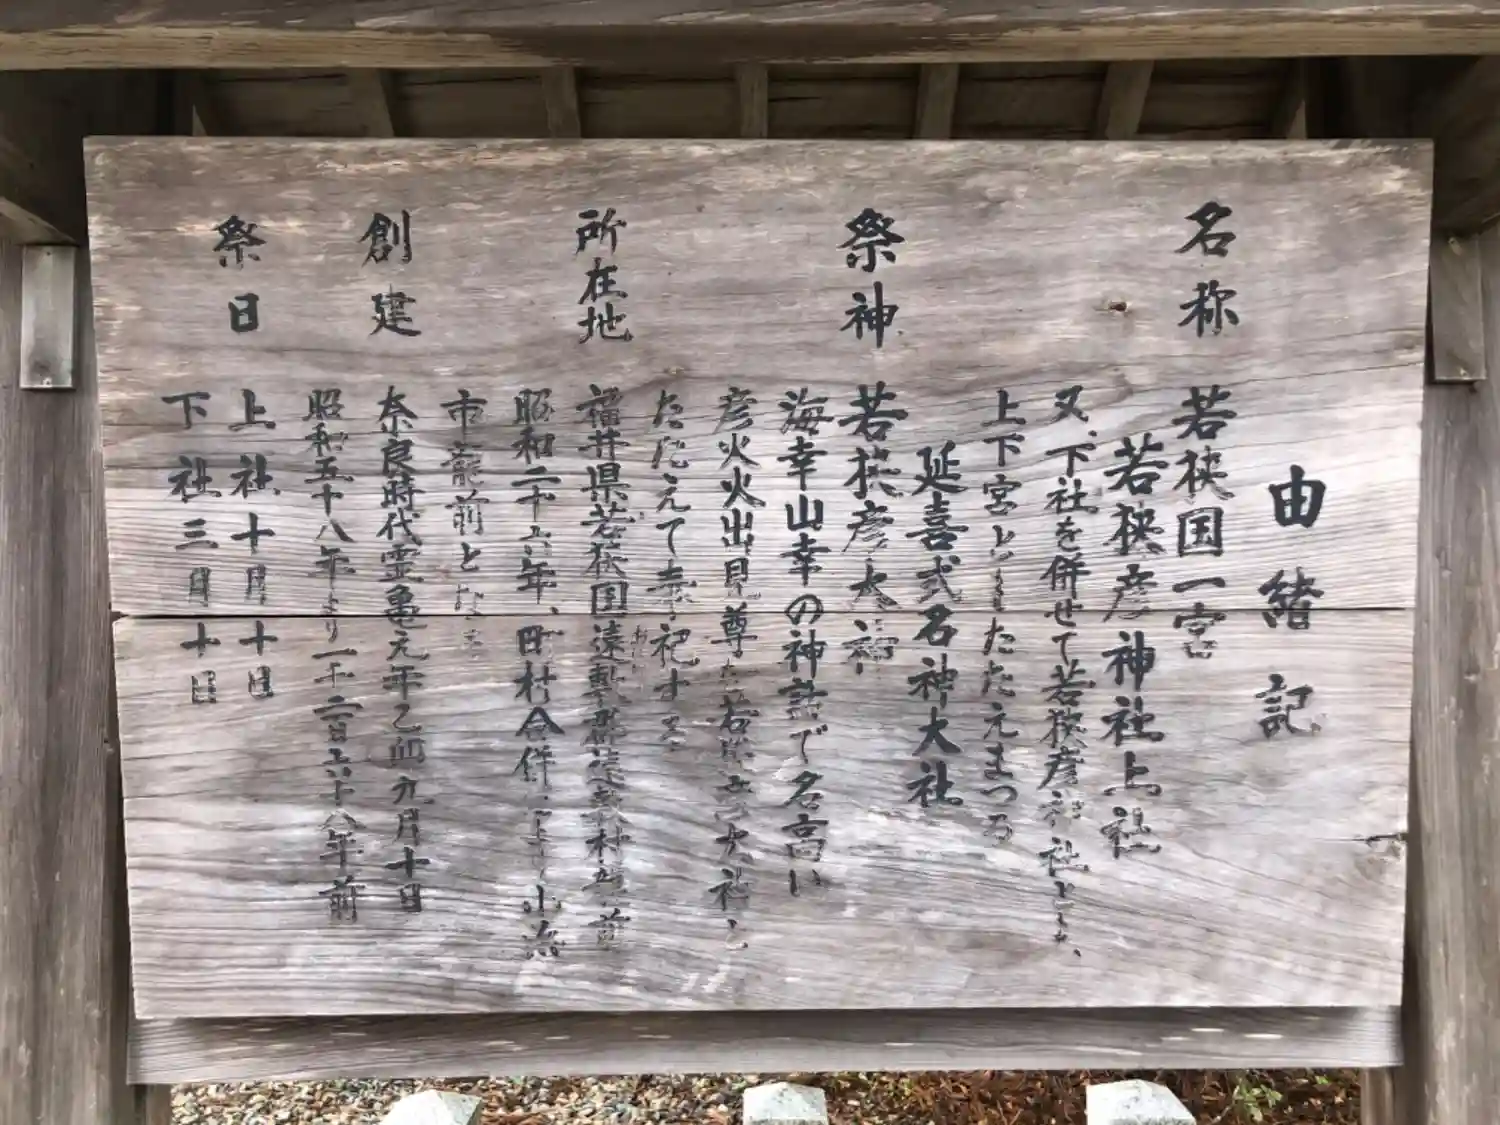 由緒記
名称
若狭国一宮
若狭彦神社上社
又、下社を併せて若狭彦神社とし、
上下宮と たたえまつる
延喜式名神大社
祭神
若狭彦大神
海幸山幸の神話で名高い
彦火火出見尊を若狭彦大神と
たたえて奉祀す
所在地
福井県若狭国遠敷郡遠敷村龍前
昭和二十六年、町村合併により小浜
市龍前となる
創建
奈良時代霊亀元年乙卯九月十日
昭和五十八年より一千二百六十八年前
祭日
上社 十月十日
下社 三月十日